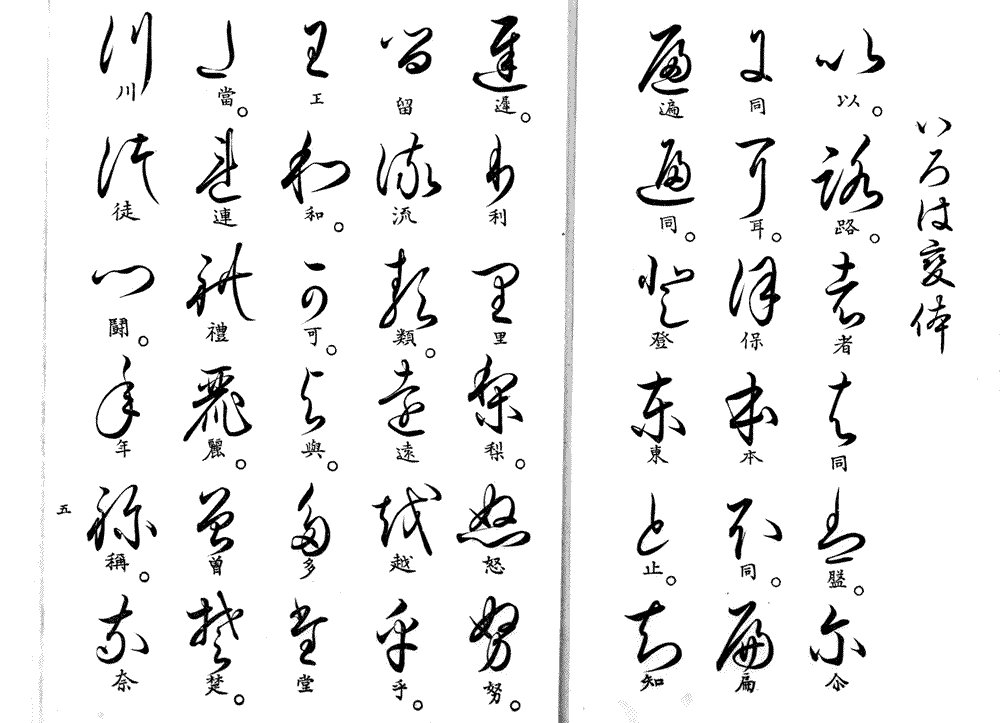 いろは変体
以。路。者同盤。尒
同耳。保本同。扁
遍同。登東止。知
遲。利里梨。怒努。
留流類。遠越乎。
王和。可。與。多堂
當。連禮麗。曽楚。
川徒鬪。年稱。奈
五